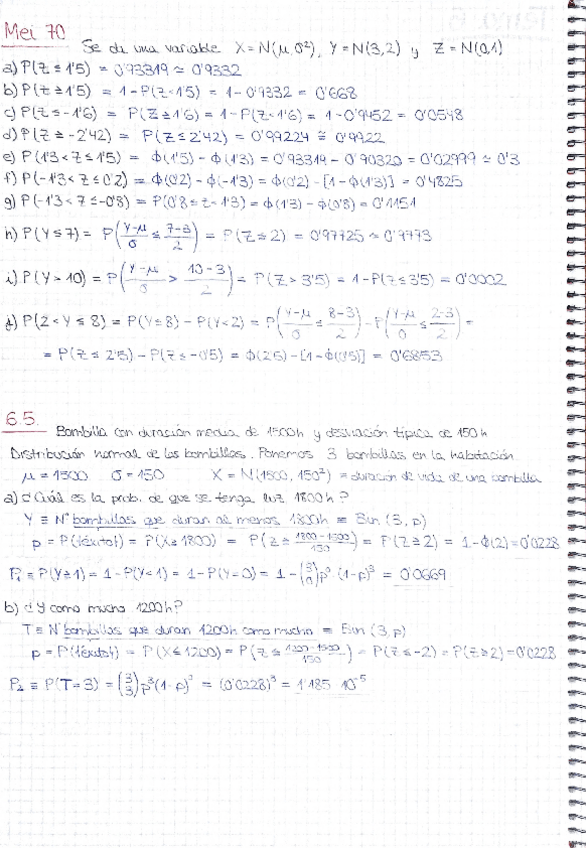 Mei 70
Se da una variable X = N(μ,σ²), Y = N(3,2) y Z = N(0,1)
a) P(Z ≤ 1'5) = 0'93319 ≃ 0'9332
b) P(Z ≥ 1'5) = 1 - P(Z < 1'5) = 1 - 0'9332 = 0'668
c) P(Z ≤ -1'6) = P(Z ≥ 1'6) = 1 - P(Z < 1'6) = 1 - 0'9452 = 0'0548
d) P(Z ≥ -2'42) = P(Z ≤ 2'42) = 0'99224 ≅ 0'9922
e) P(1'3 < Z ≤ 1'5) = Φ(1'5) - Φ(1'3) = 0'93319 - 0'90320 = 0'02999 ≃ 0'3
f) P(-1'3 < Z ≤ 0'2) = Φ(0'2) - Φ(-1'3) = Φ(0'2) - [1 - Φ(1'3)] = 0'4825
g) P(-1'3 < Z ≤ -0'8) = P(0'8 ≤ Z < 1'3) = Φ(1'3) - Φ(0'8) = 0'1151
h) P(Y ≤ 7) = P((Y-μ)/σ ≤ (7-3)/2) = P(Z ≤ 2) = 0'97725 ≃ 0'9773
i) P(Y > 10) = P((Y-μ)/σ > (10-3)/2) = P(Z > 3'5) = 1 - P(Z ≤ 3'5) = 0'0002
j) P(2 < Y ≤ 8) = P(Y ≤ 8) - P(Y < 2) = P((Y-μ)/σ ≤ (8-3)/2) - P((Y-μ)/σ ≤ (2-3)/2) =
= P(Z ≤ 2'5) - P(Z ≤ -0'5) = Φ(2'5) - [1 - Φ(0'5)] = 0'6853
6.5.
Bombilla con duración media de 1500h y desviación típica de 150h
Distribución normal de las bombillas. Ponemos 3 bombillas en la habitación
μ = 1500 σ = 150 X = N(1500, 150²) = duración de vida de una bombilla
a) ¿Cuál es la prob. de que se tenga luz 1800h?
Y ≡ Nº bombillas que duran al menos 1800h = Bin(3, p)
p = P(féxito) = P(X ≥ 1800) = P(Z ≥ (1800-1500)/150) = P(Z ≥ 2) = 1 - Φ(2) = 0'0228
P₁ ≡ P(Y ≥ 1) = 1 - P(Y < 1) = 1 - P(Y = 0) = 1 - (3 0) p⁰ (1-p)³ = 0'0669
b) ¿Y como mucho 1200h?
T ≡ Nº bombillas que duran 1200h como mucho = Bin(3, p)
p = P(féxito) = P(X ≤ 1200) = P(Z ≤ (1200-1500)/150) = P(Z ≤ -2) = P(Z ≥ 2) = 0'0228
P₂ ≡ P(T = 3) = (3 3) p³ (1-p)⁰ = (0'0228)³ = 1'185 10⁻⁵